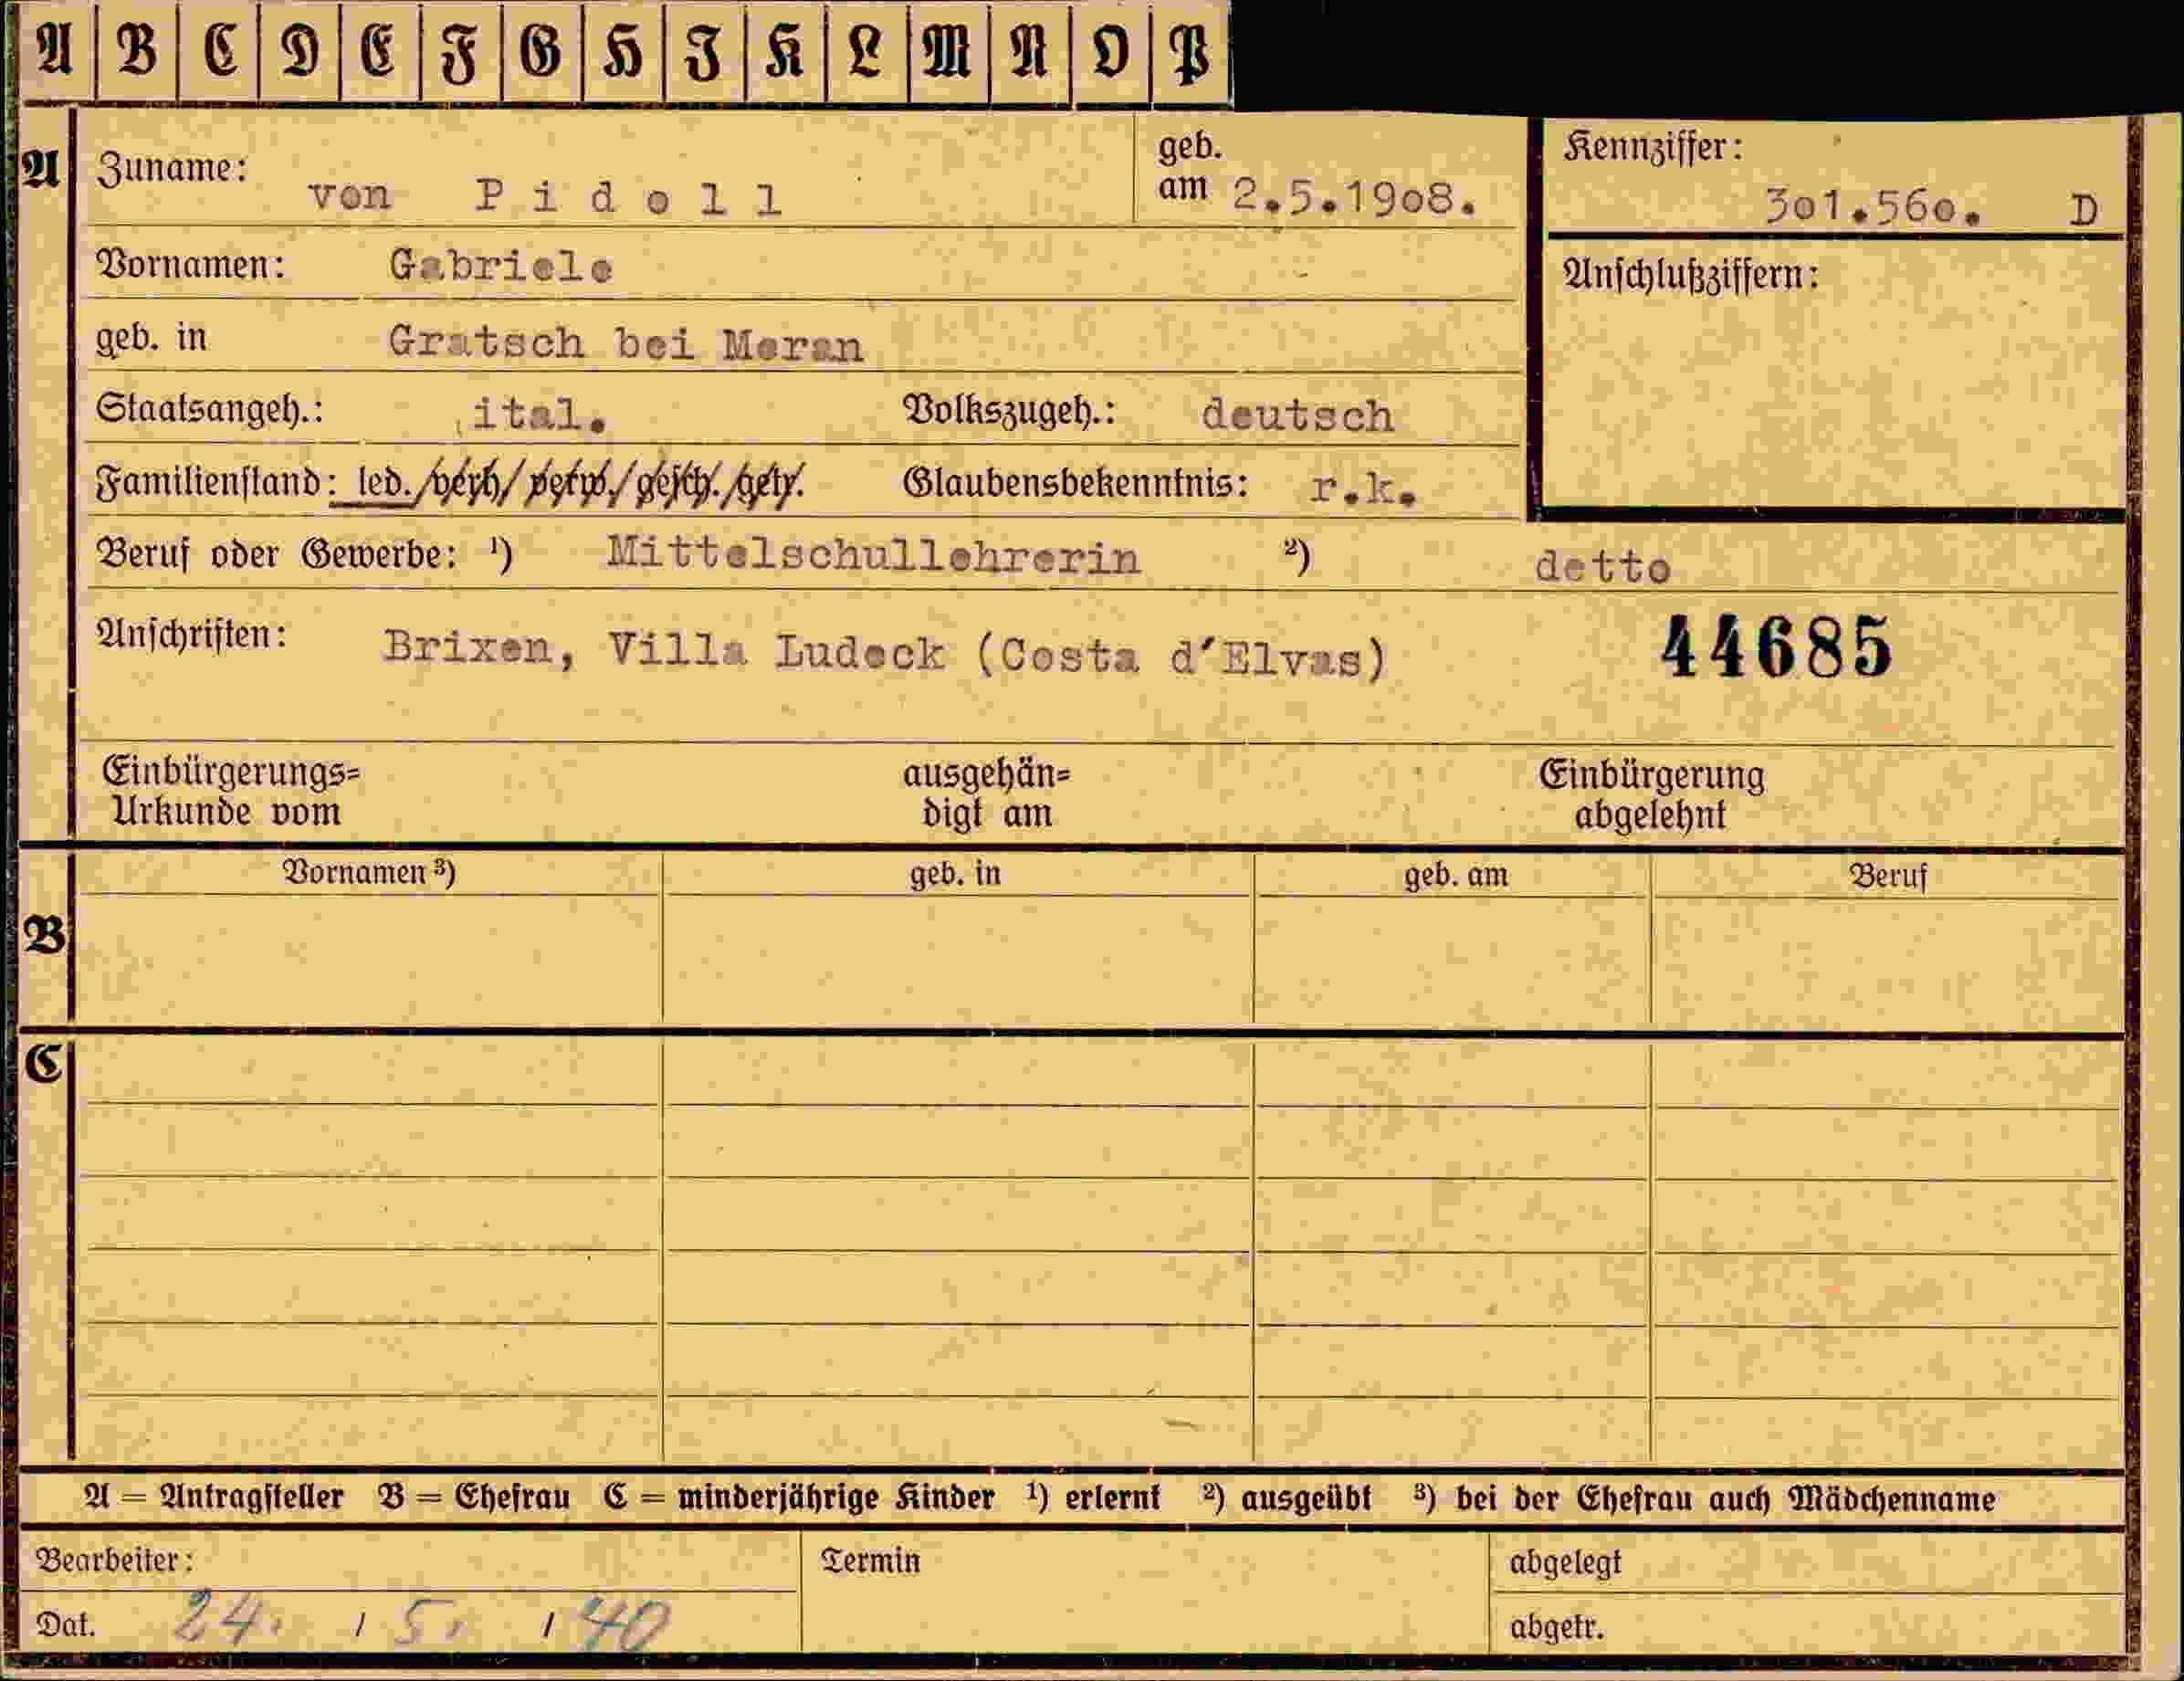 A B C D E F G H J K L M N O P
A Zuname: von Pidoll geb. am 2.5.1908. Kennziffer: 301.560. D
Vornamen: Gabriele Anschlußziffern:
geb. in Gratsch bei Meran
Staatsangeh.: ital. Volkszugeh.: deutsch
Familienstand: led./verh/verw./gesch./getr. Glaubensbekenntnis: r.k.
Beruf oder Gewerbe: ¹) Mittelschullehrerin ²) detto
Anschriften: Brixen, Villa Ludeck (Costa d'Elvas) 44685
Einbürgerungs= ausgehän= Einbürgerung
Urkunde vom digt am abgelehnt
Vornamen ³) geb. in geb. am Beruf
B
C
A = Antragsteller B = Ehefrau C = minderjährige Kinder ¹) erlernt ²) ausgeübt ³) bei der Ehefrau auch Mädchenname
Bearbeiter: Termin abgelegt
Dat. 24. / 5. / 40 abgetr.